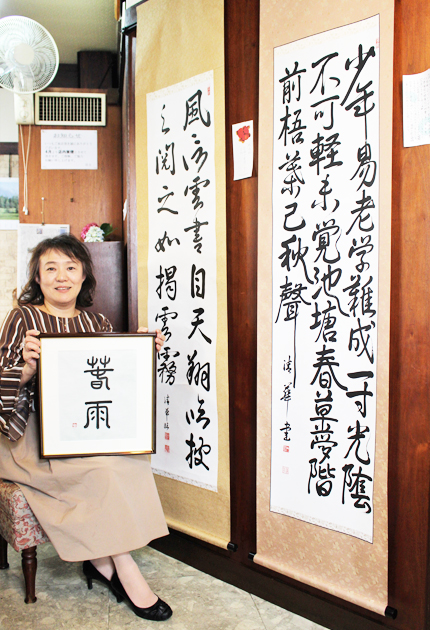 少年易老学難成一寸光陰
不可軽未覚池塘春草夢階
前梧葉已秋聲 清華書
風信雲書自天翔臨披
之閲之如揭雲霧 清華臨
春雨